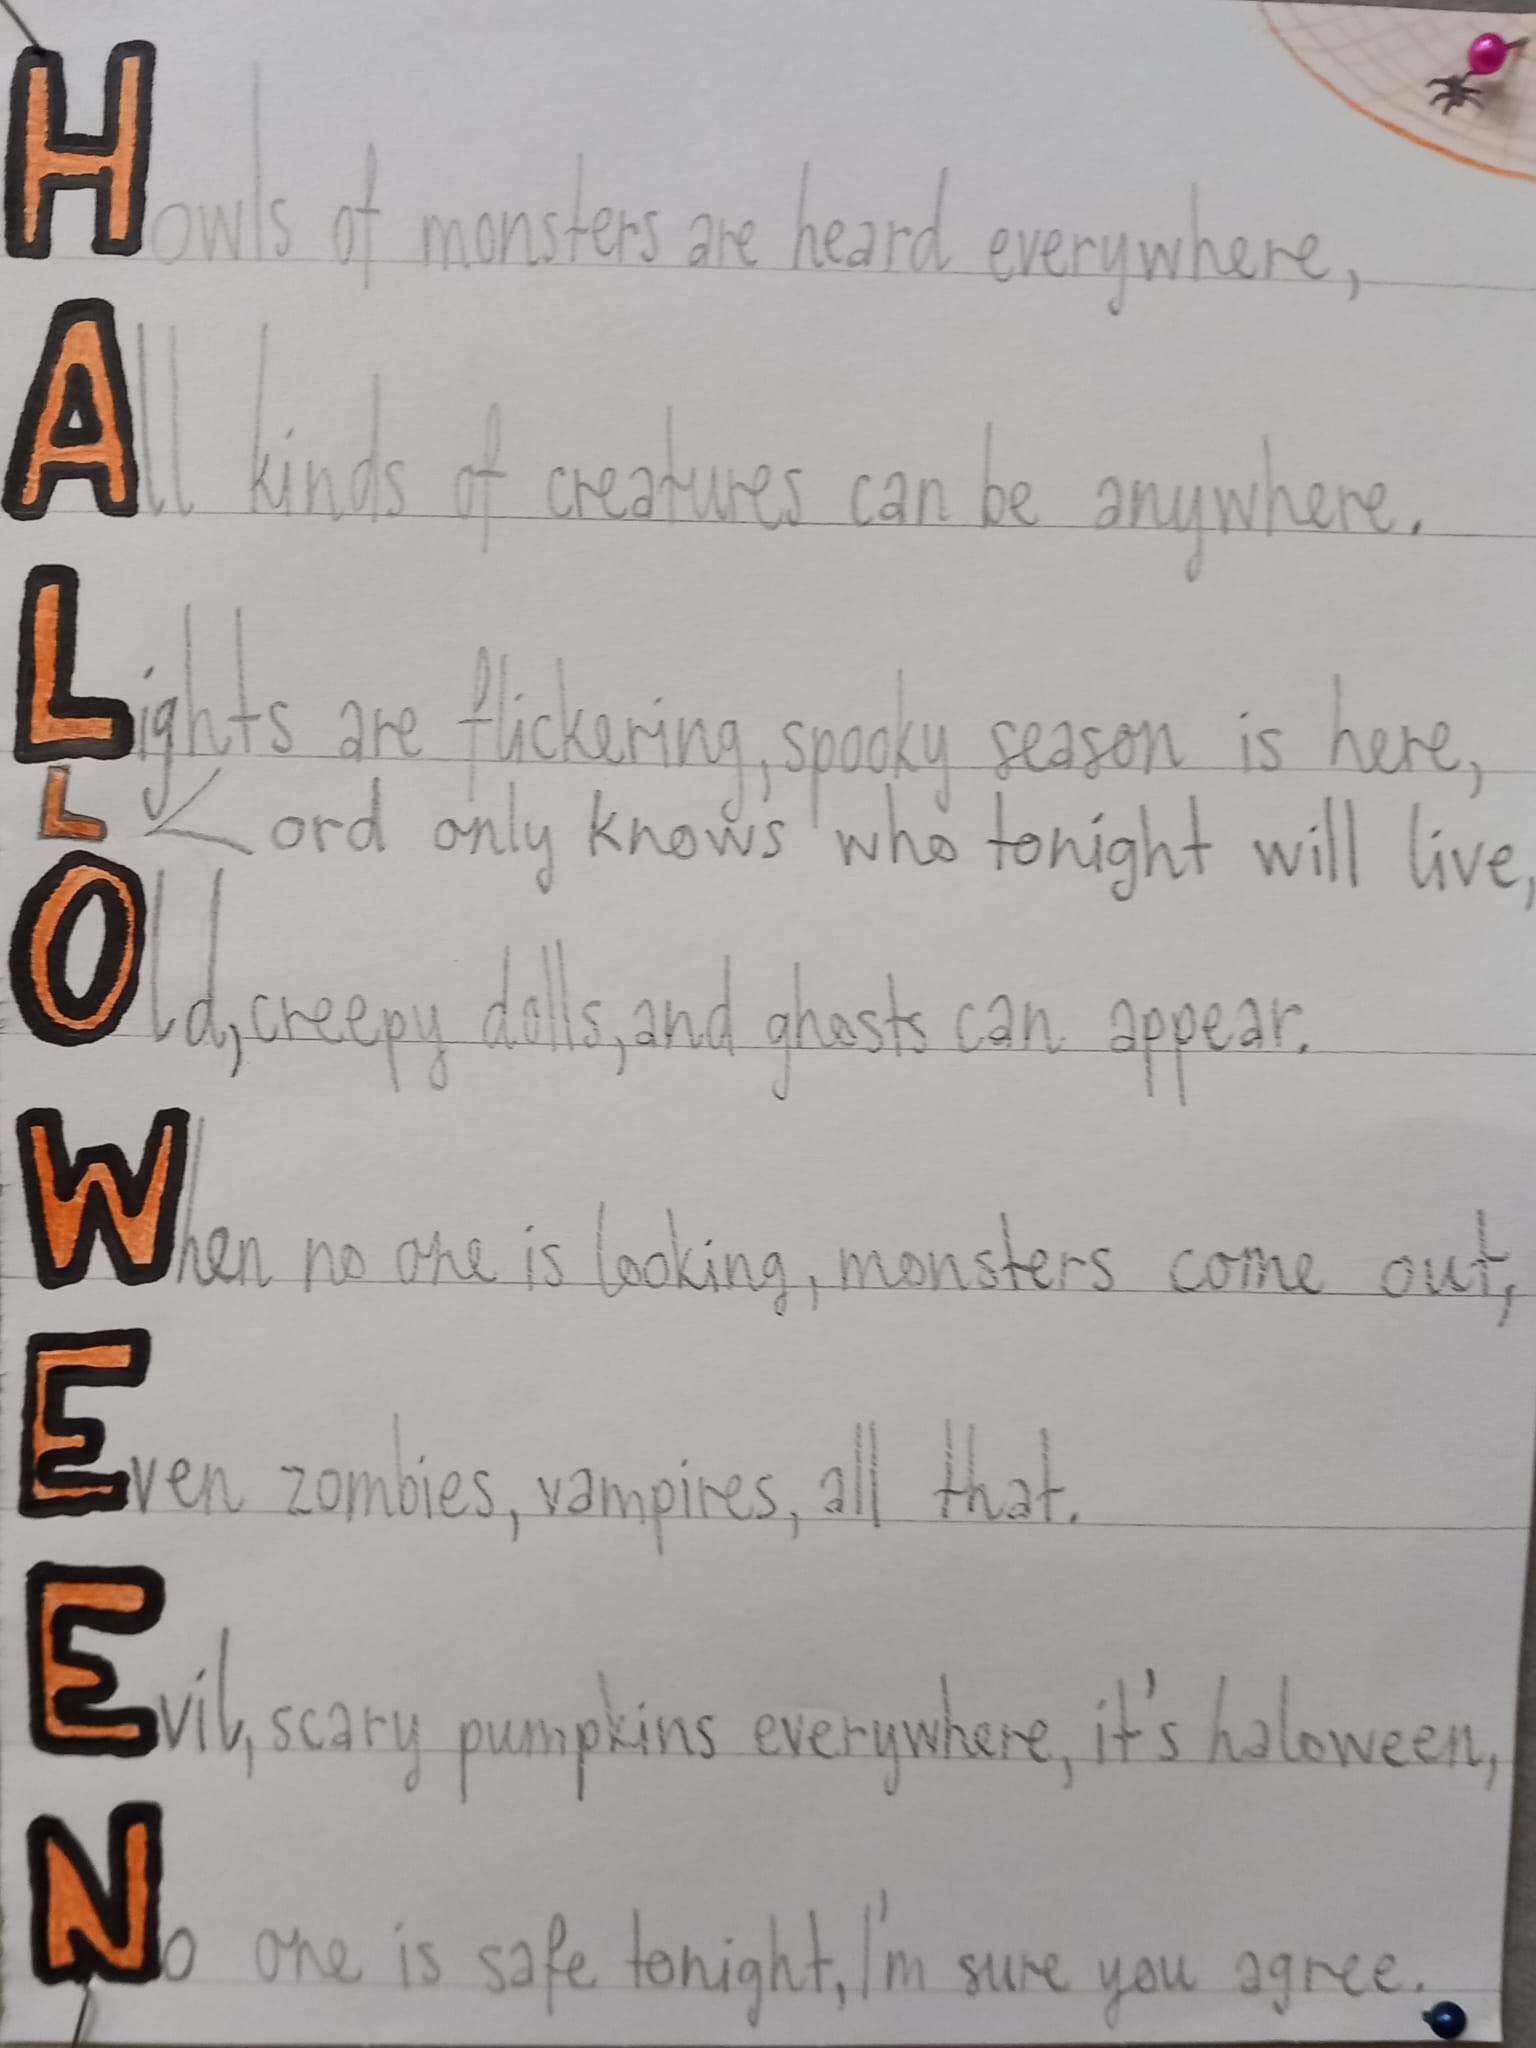 Howls of monsters are heard everywhere,
All kinds of creatures can be anywhere.
Lights are flickering, spooky season is here,
L Lord only knows who tonight will live,
Old, creepy dolls, and ghosts can appear.
When no one is looking, monsters come out,
Even zombies, vampires, all that.
Evil, scary pumpkins everywhere, it's haloween,
No one is safe tonight, I'm sure you agree.